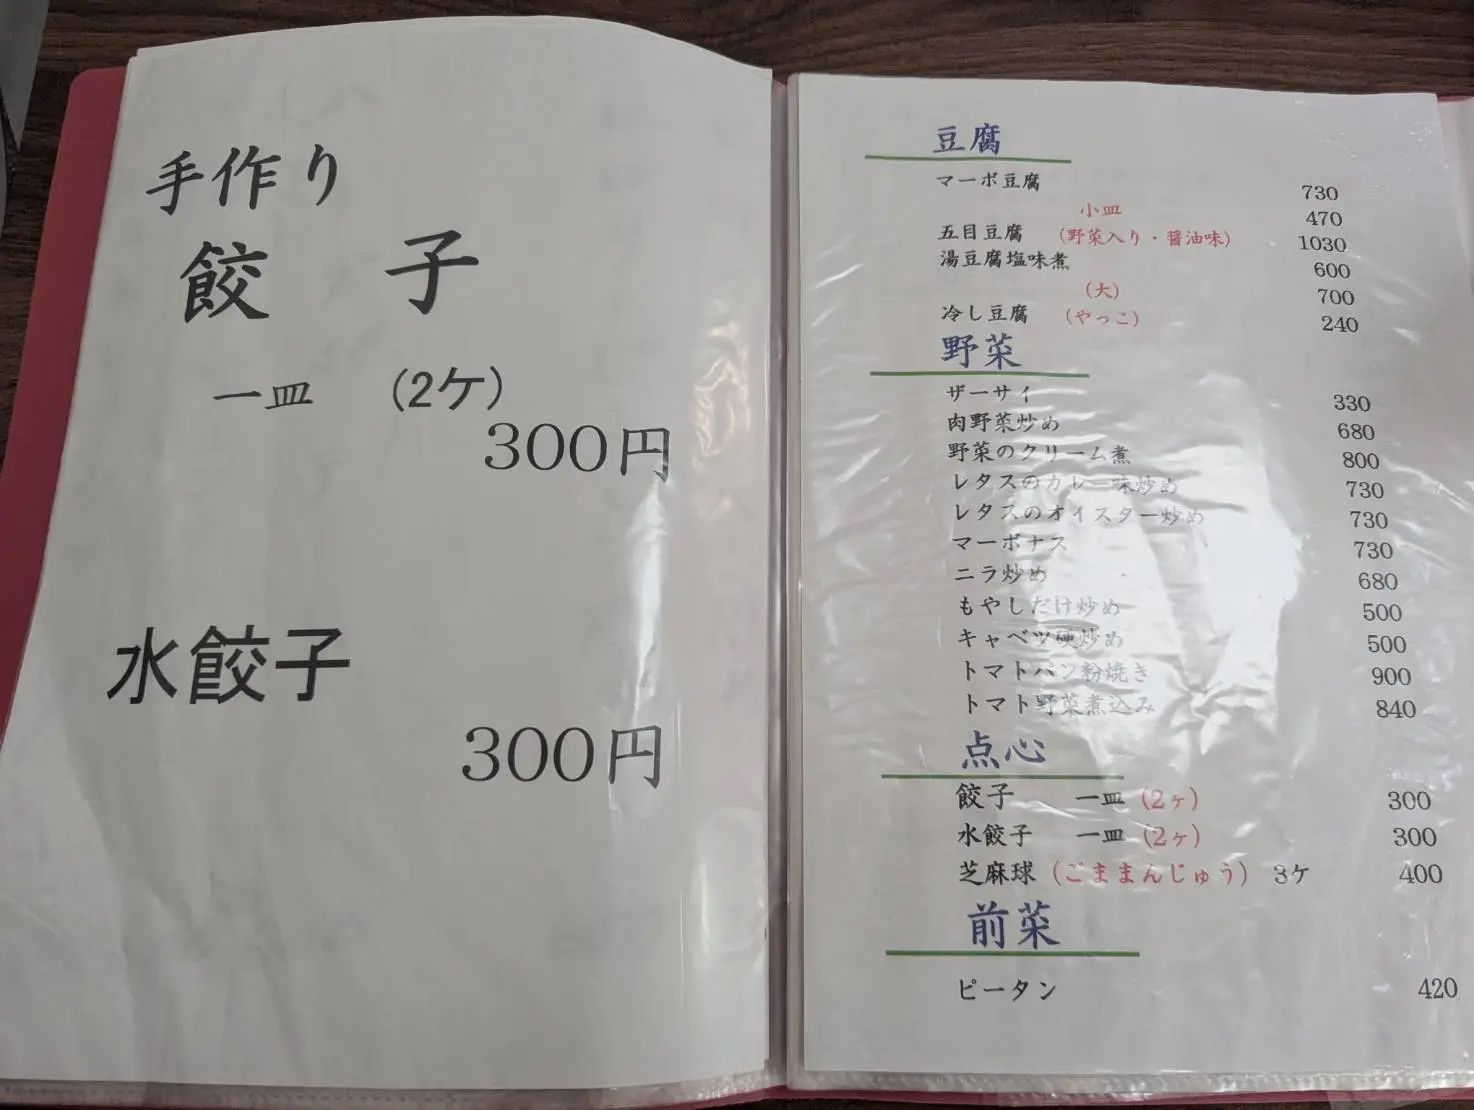 手作り
餃 子
一皿 (2ケ)
300円
水餃子
300円
豆腐
マーボ豆腐 730
小皿 470
五目豆腐 (野菜入り・醤油味) 1030
湯豆腐塩味煮 600
(大) 700
冷し豆腐 (やっこ) 240
野菜
ザーサイ 330
肉野菜炒め 680
野菜のクリーム煮 800
レタスのカレー味炒め 730
レタスのオイスター炒め 730
マーボナス 730
ニラ炒め 680
もやしだけ炒め 500
キャベツ硬炒め 500
トマトパン粉焼き 900
トマト野菜煮込み 840
点心
餃子 一皿 (2ヶ) 300
水餃子 一皿 (2ヶ) 300
芝麻球 (ごままんじゅう) 3ケ 400
前菜
ピータン 420